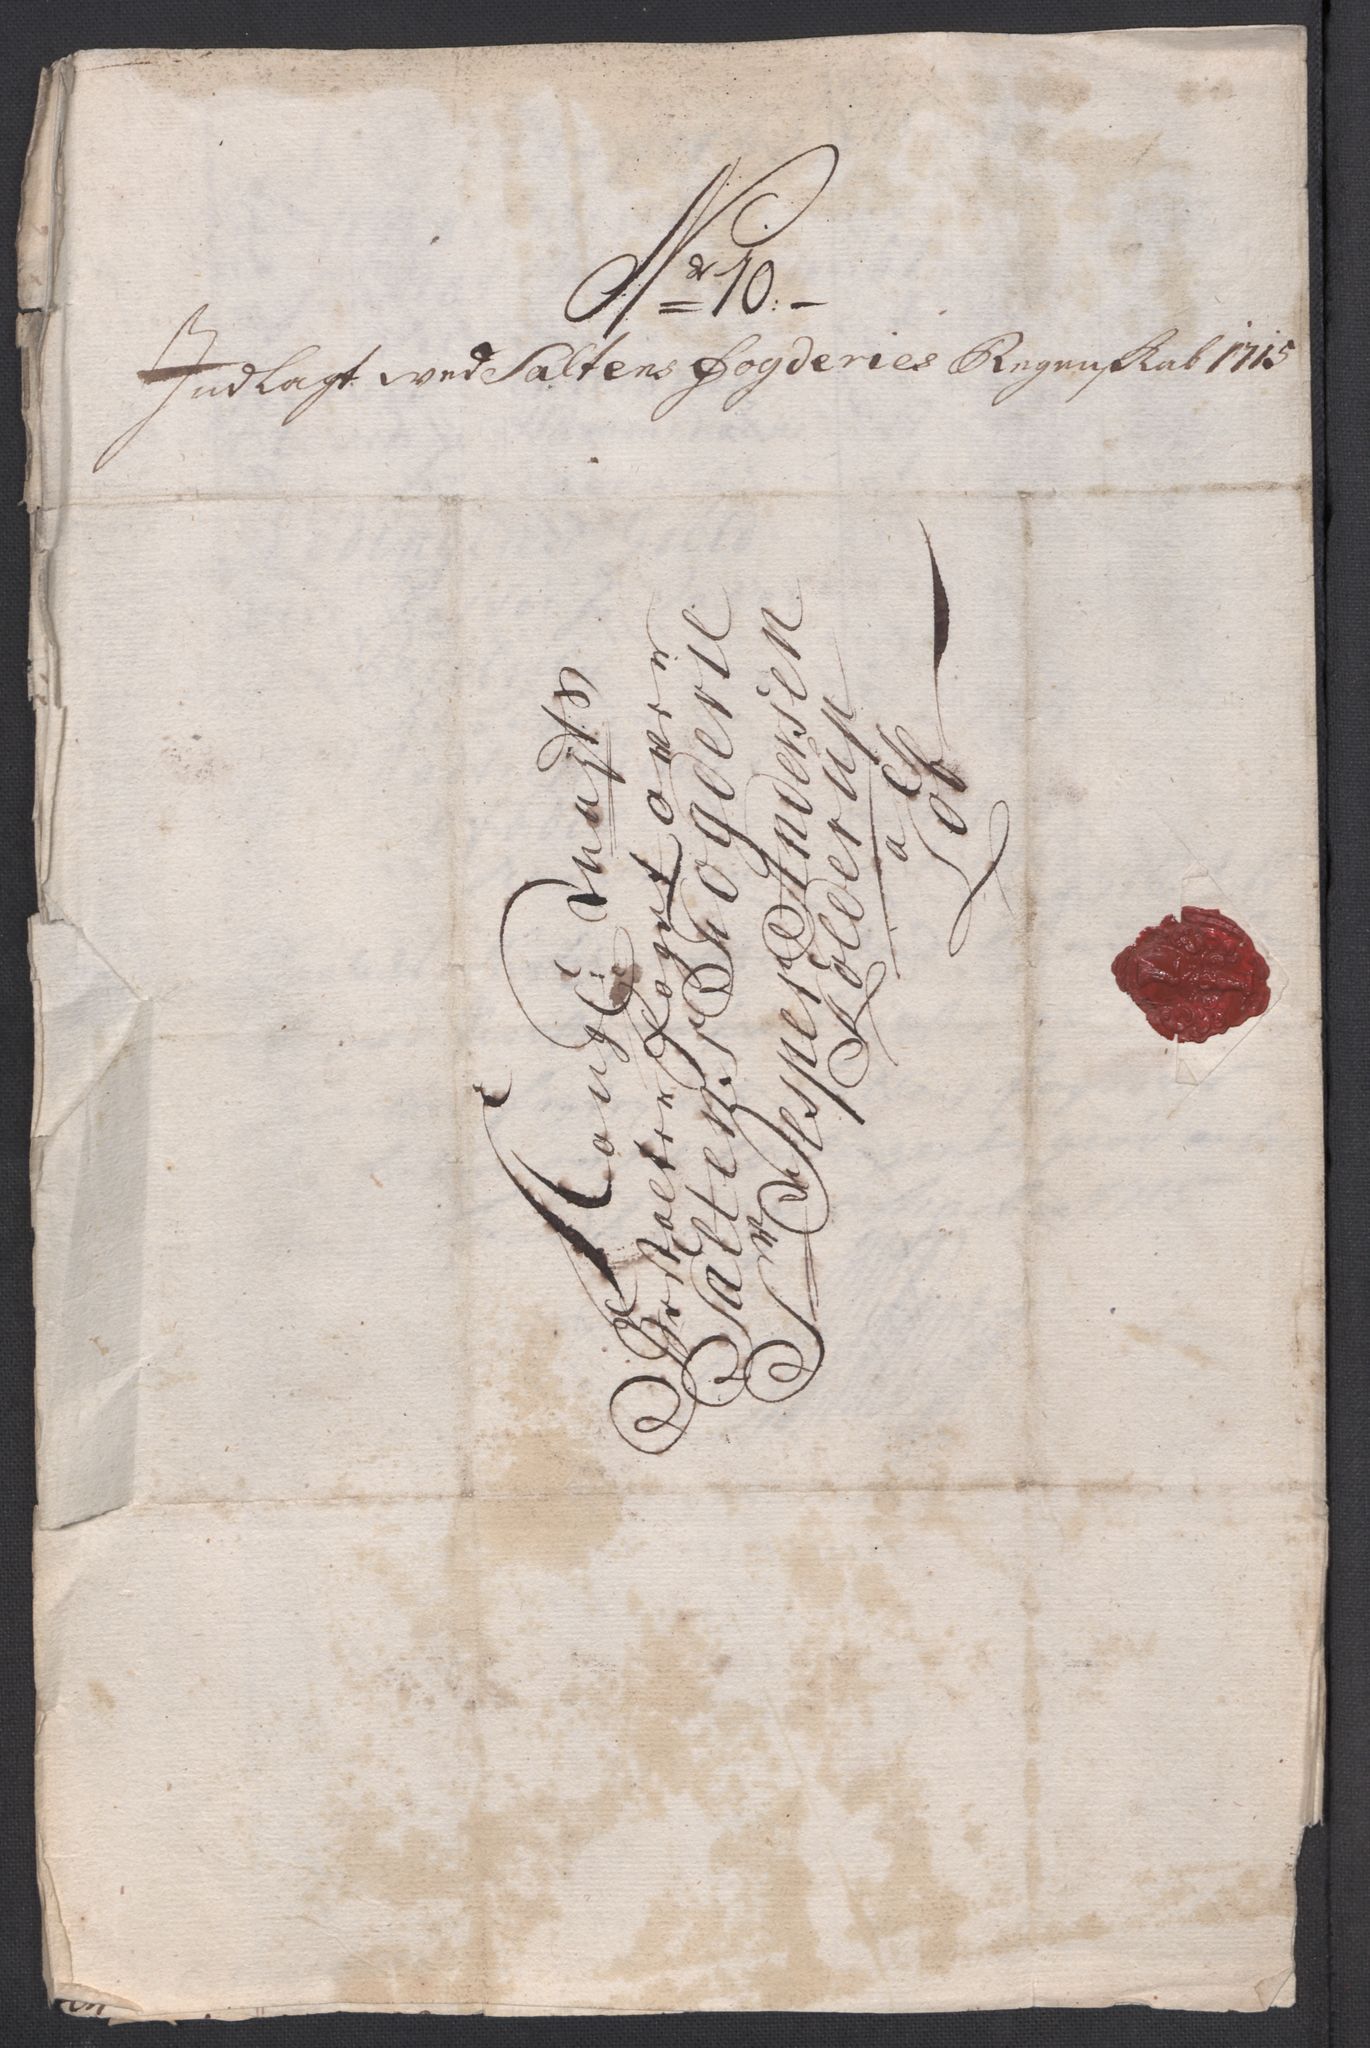 Nr 10.
Indlagt ved Saltens fogderies Regenskab 1715
Kongl: Mayts
Bestalter Fogt over
Saltens Fogderie
Sr Jesper Andersen
Lølderup
a